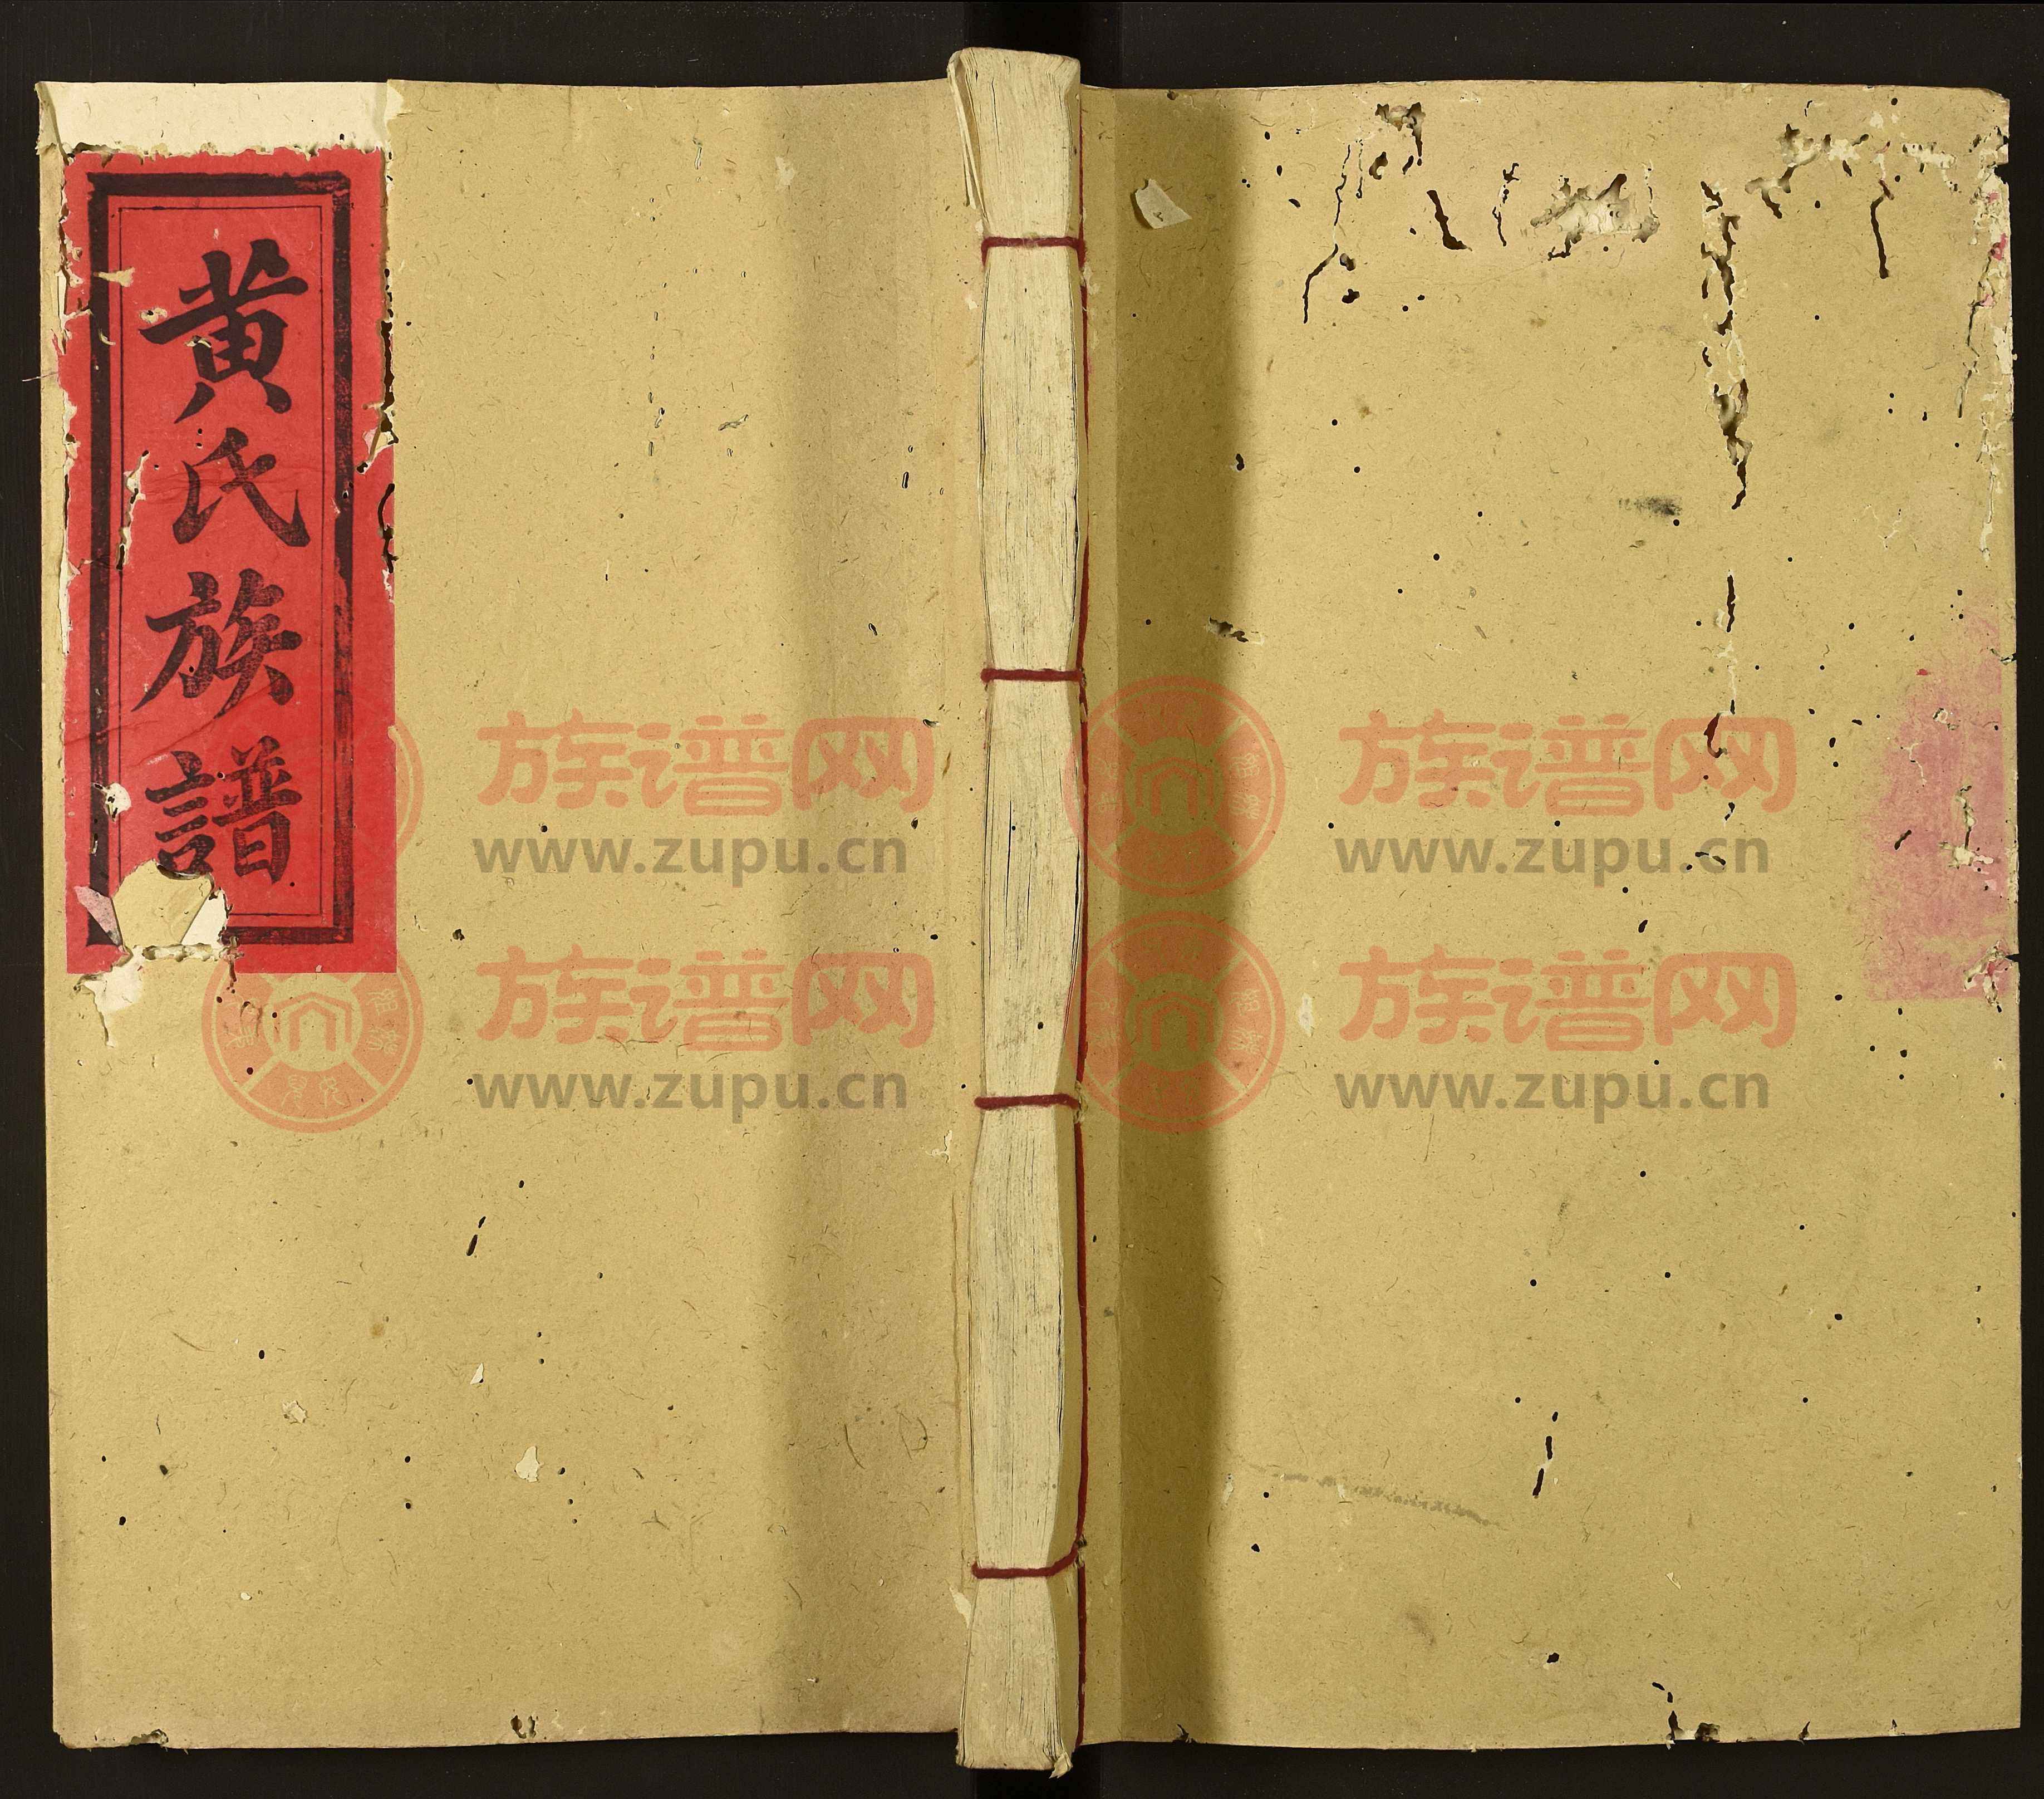 黄氏族譜
族谱网
www.zupu.cn
族谱网
www.zupu.cn
族谱网
www.zupu.cn
族谱网
www.zupu.cn